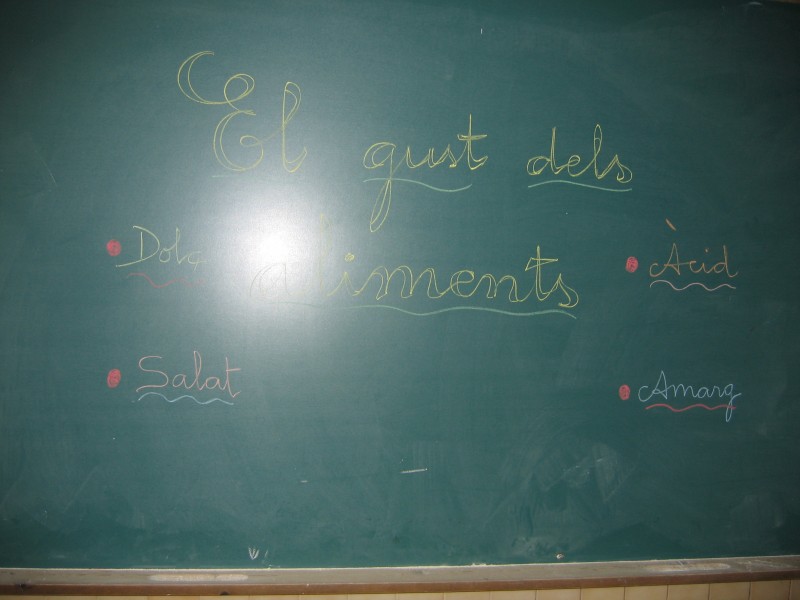 El gust dels
aliments
Dolç
Àcid
Salat
Amarg